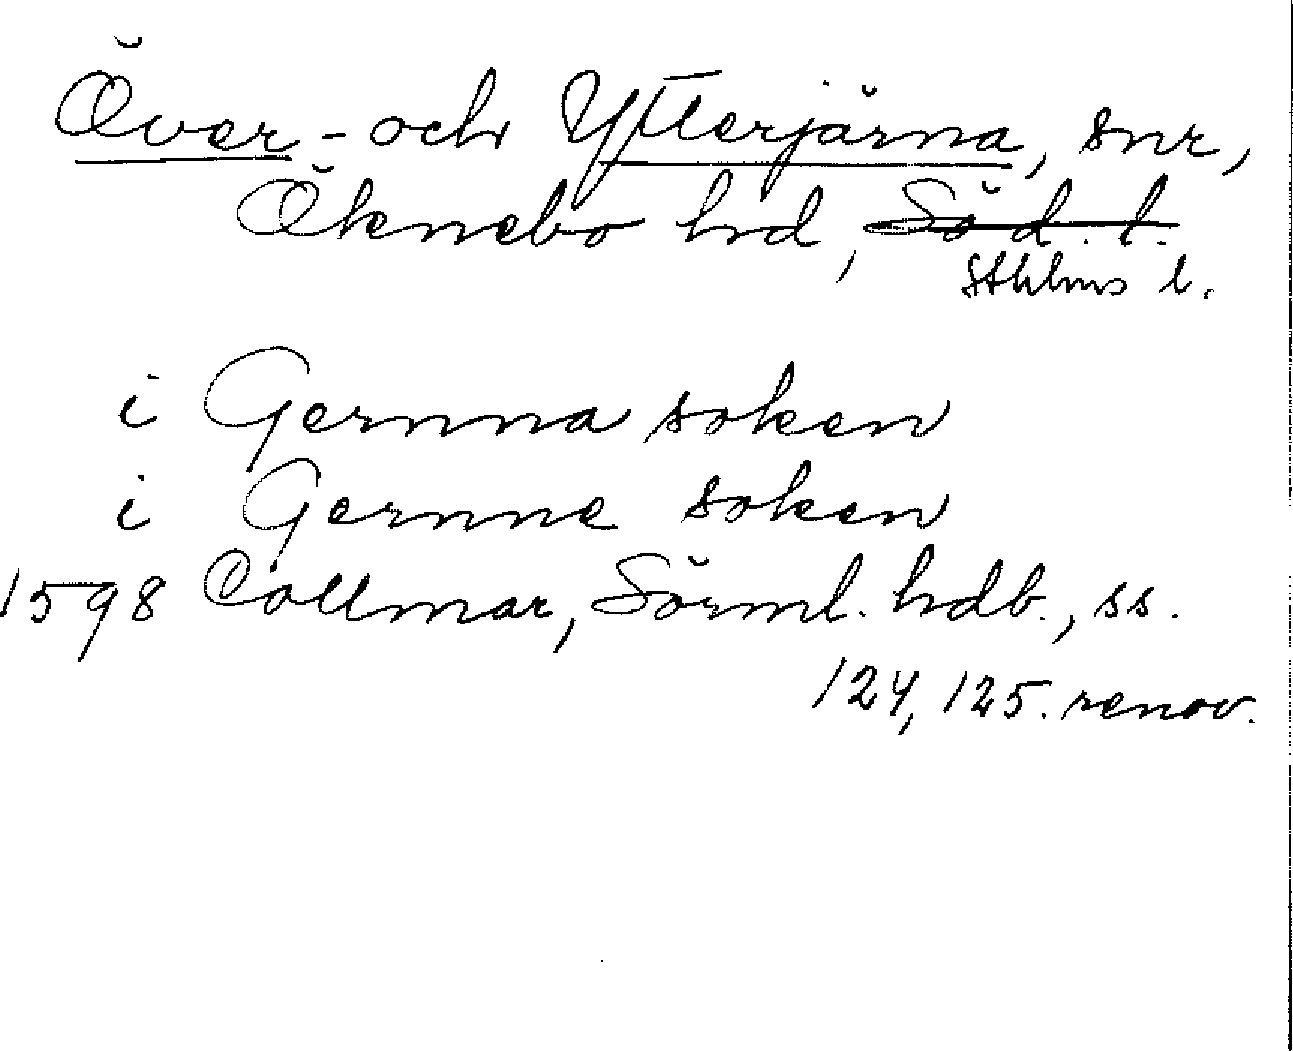 Över- och Ytterjärna, snr,
Öknebo hd, Söd. l.
Sthlms l.
i Gernna soken
i Gernne soken
1598 Collmar, Sörml. hdb., ss.
124, 125. renov.